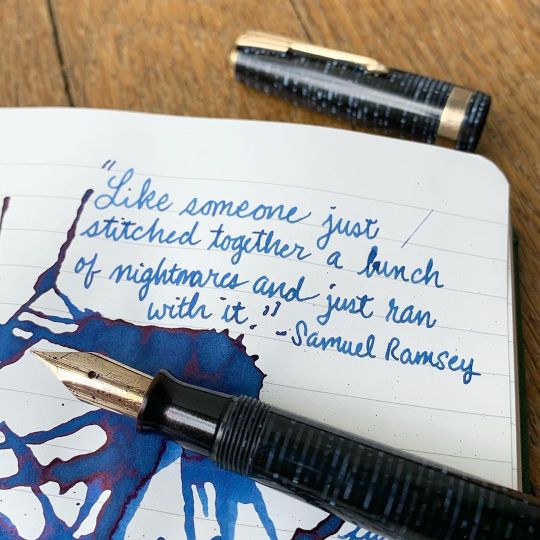 "Like someone just
stitched together a bunch
of nightmares and just ran
with it."
-Samuel Ramsey